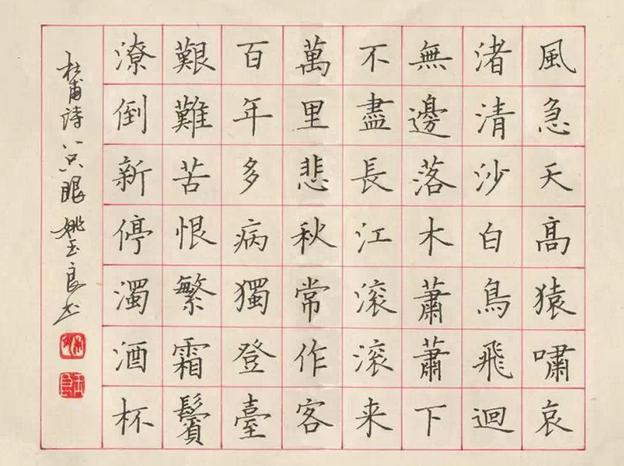 風急天高猿嘯哀
渚清沙白鳥飛迴
無邊落木蕭蕭下
不盡長江滾滾来
萬里悲秋常作客
百年多病獨登臺
艱難苦恨繁霜鬢
潦倒新停濁酒杯
杜甫詩 只眼 姚玉良书